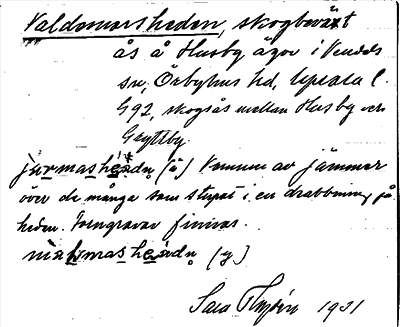 Valdemarsheden, skogbeväxt
ås å Husby ägor i Vendels
sn, Örbyhus hd, Upsala l.
G92, skogsås mellan Husby och
Gryttby.
jàrmashe̍dn (ä) Kommer av jämmer
över de många som stupat i en drabbning på
heden. Forngravar finnas.
(y)
Sara 1931